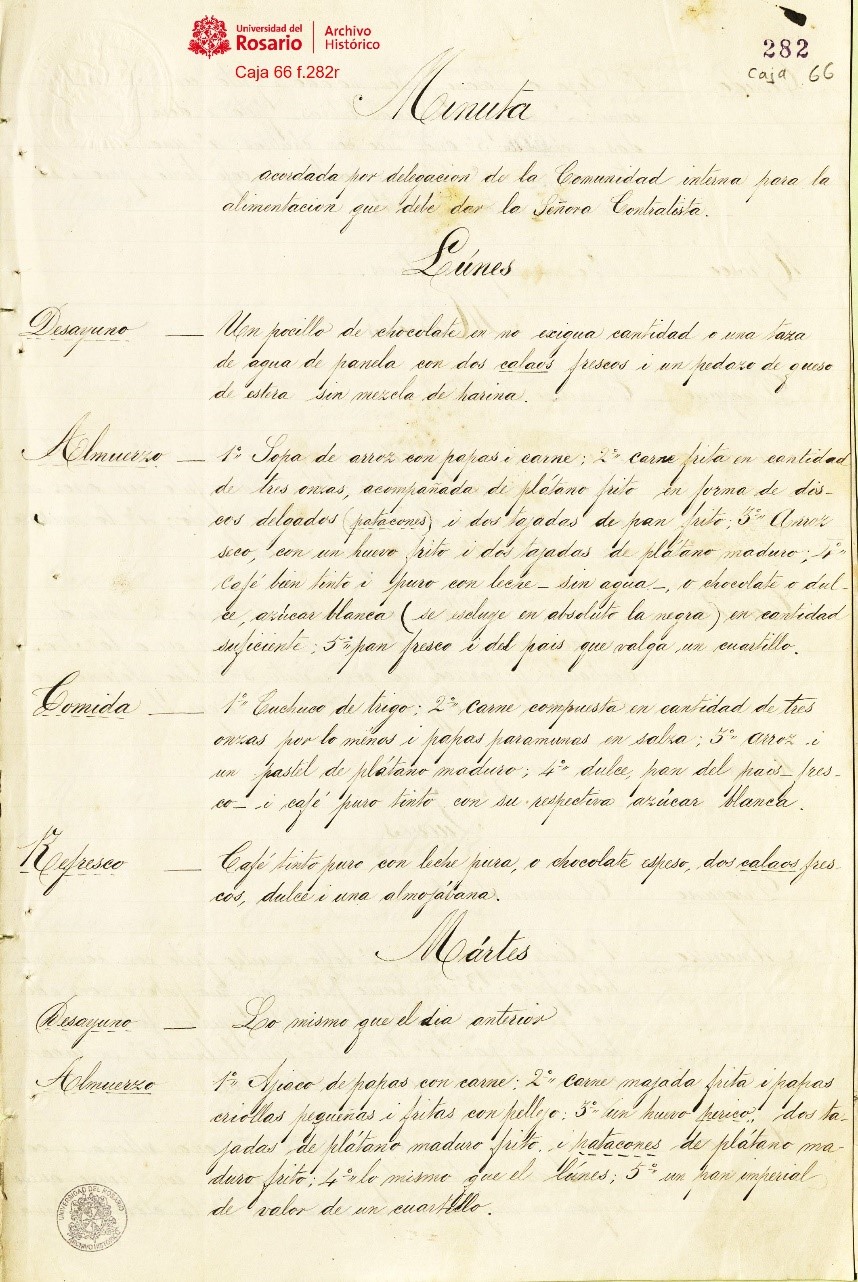 Universidad del
Rosario
Archivo
Histórico
Caja 66 f.282r
282
Caja 66
Minuta
acordada por delegacion de la Comunidad interna para la
alimentacion que debe dar la Señora Contratista.
Lúnes
Desayuno — Un pocillo de chocolate en no exigua cantidad o una taza
de agua de panela con dos calaos frescos i un pedazo de queso
de estera sin mezcla de harina.
Almuerzo — 1º Sopa de arroz con papas i carne; 2º carne frita en cantidad
de tres onzas, acompañada de plátano frito en forma de dis-
cos delgados (patacones) i dos tajadas de pan frito; 3º Arroz
seco, con un huevo frito i dos tajadas de plátano maduro; 4º
Café bien tinto i puro con leche – sin agua –, o chocolate o dul-
ce, azúcar blanca (se escluye en absoluto la negra) en cantidad
suficiente; 5º pan fresco i del pais que valga un cuartillo.
Comida — 1º Cuchuco de trigo; 2º carne compuesta en cantidad de tres
onzas por lo menos i papas paramunas en salza; 3º arroz i
un pastel de plátano maduro; 4º dulce, pan del pais – fres-
co – i café puro tinto con su respectiva azúcar blanca.
Refresco — Café tinto puro con leche pura, o chocolate espeso, dos calaos fres-
cos, dulce i una almojávana.
Mártes
Desayuno — Lo mismo que el dia anterior
Almuerzo 1º Ajiaco de papas con carne; 2º carne majada frita i papas
criollas pequeñas i fritas con pellejo; 3º un huevo perico, dos ta-
jadas de plátano maduro frito i patacones de plátano ma-
duro frito; 4º lo mismo que el lúnes; 5º un pan imperial
de valor de un cuartillo.
UNIVERSIDAD DEL ROSARIO
ARCHIVO HISTÓRICO